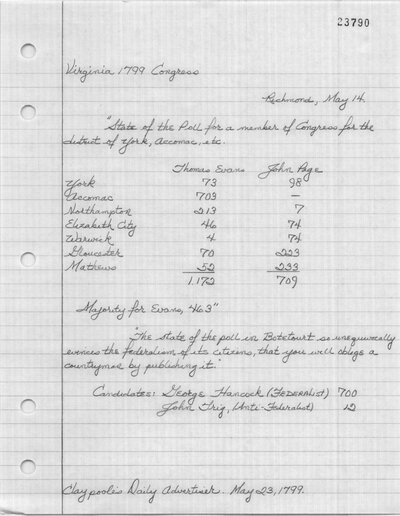 23790
Virginia 1799 Congress
Richmond, May 14.
"State of the Poll for a member of Congress for the
district of York, Accomac, etc.
Thomas Evans John Page
York 73 98
Accomac 703 —
Northampton 213 7
Elizabeth City 46 74
Warwick 4 74
Gloucester 70 223
Mathews 52 233
1,172 709
Majority for Evans, 463"
"The state of the poll in Botetourt so unequivocally
evinces the federalism of its citizens, that you will oblige a
countryman by publishing it."
Candidates: George Hancock (Federalist) 700
John Trig, (Anti-Federalist) 12
Claypoole's Daily Advertiser. May 23, 1799.